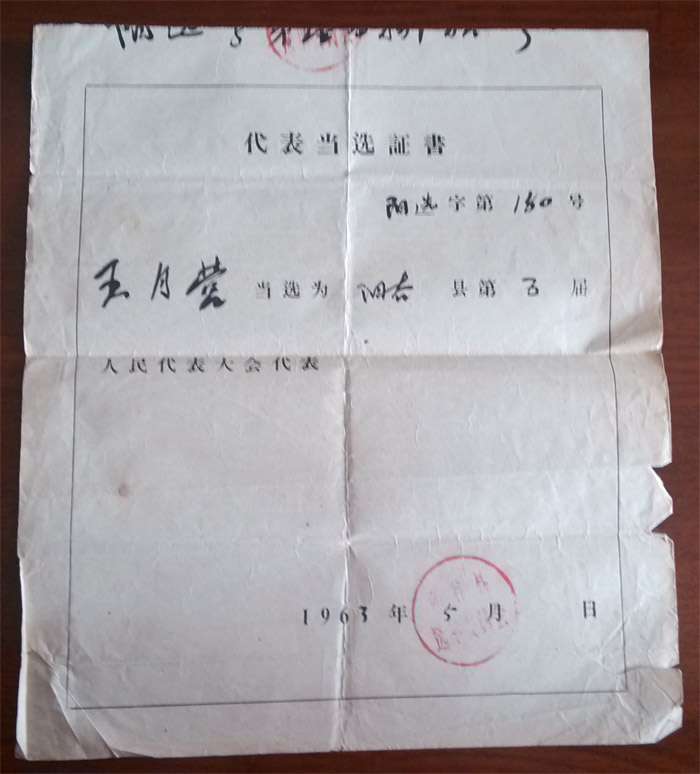 代表当选証書
阳选字第150号
王月营当选为阳谷县第5届
人民代表大会代表
1963年5月 日